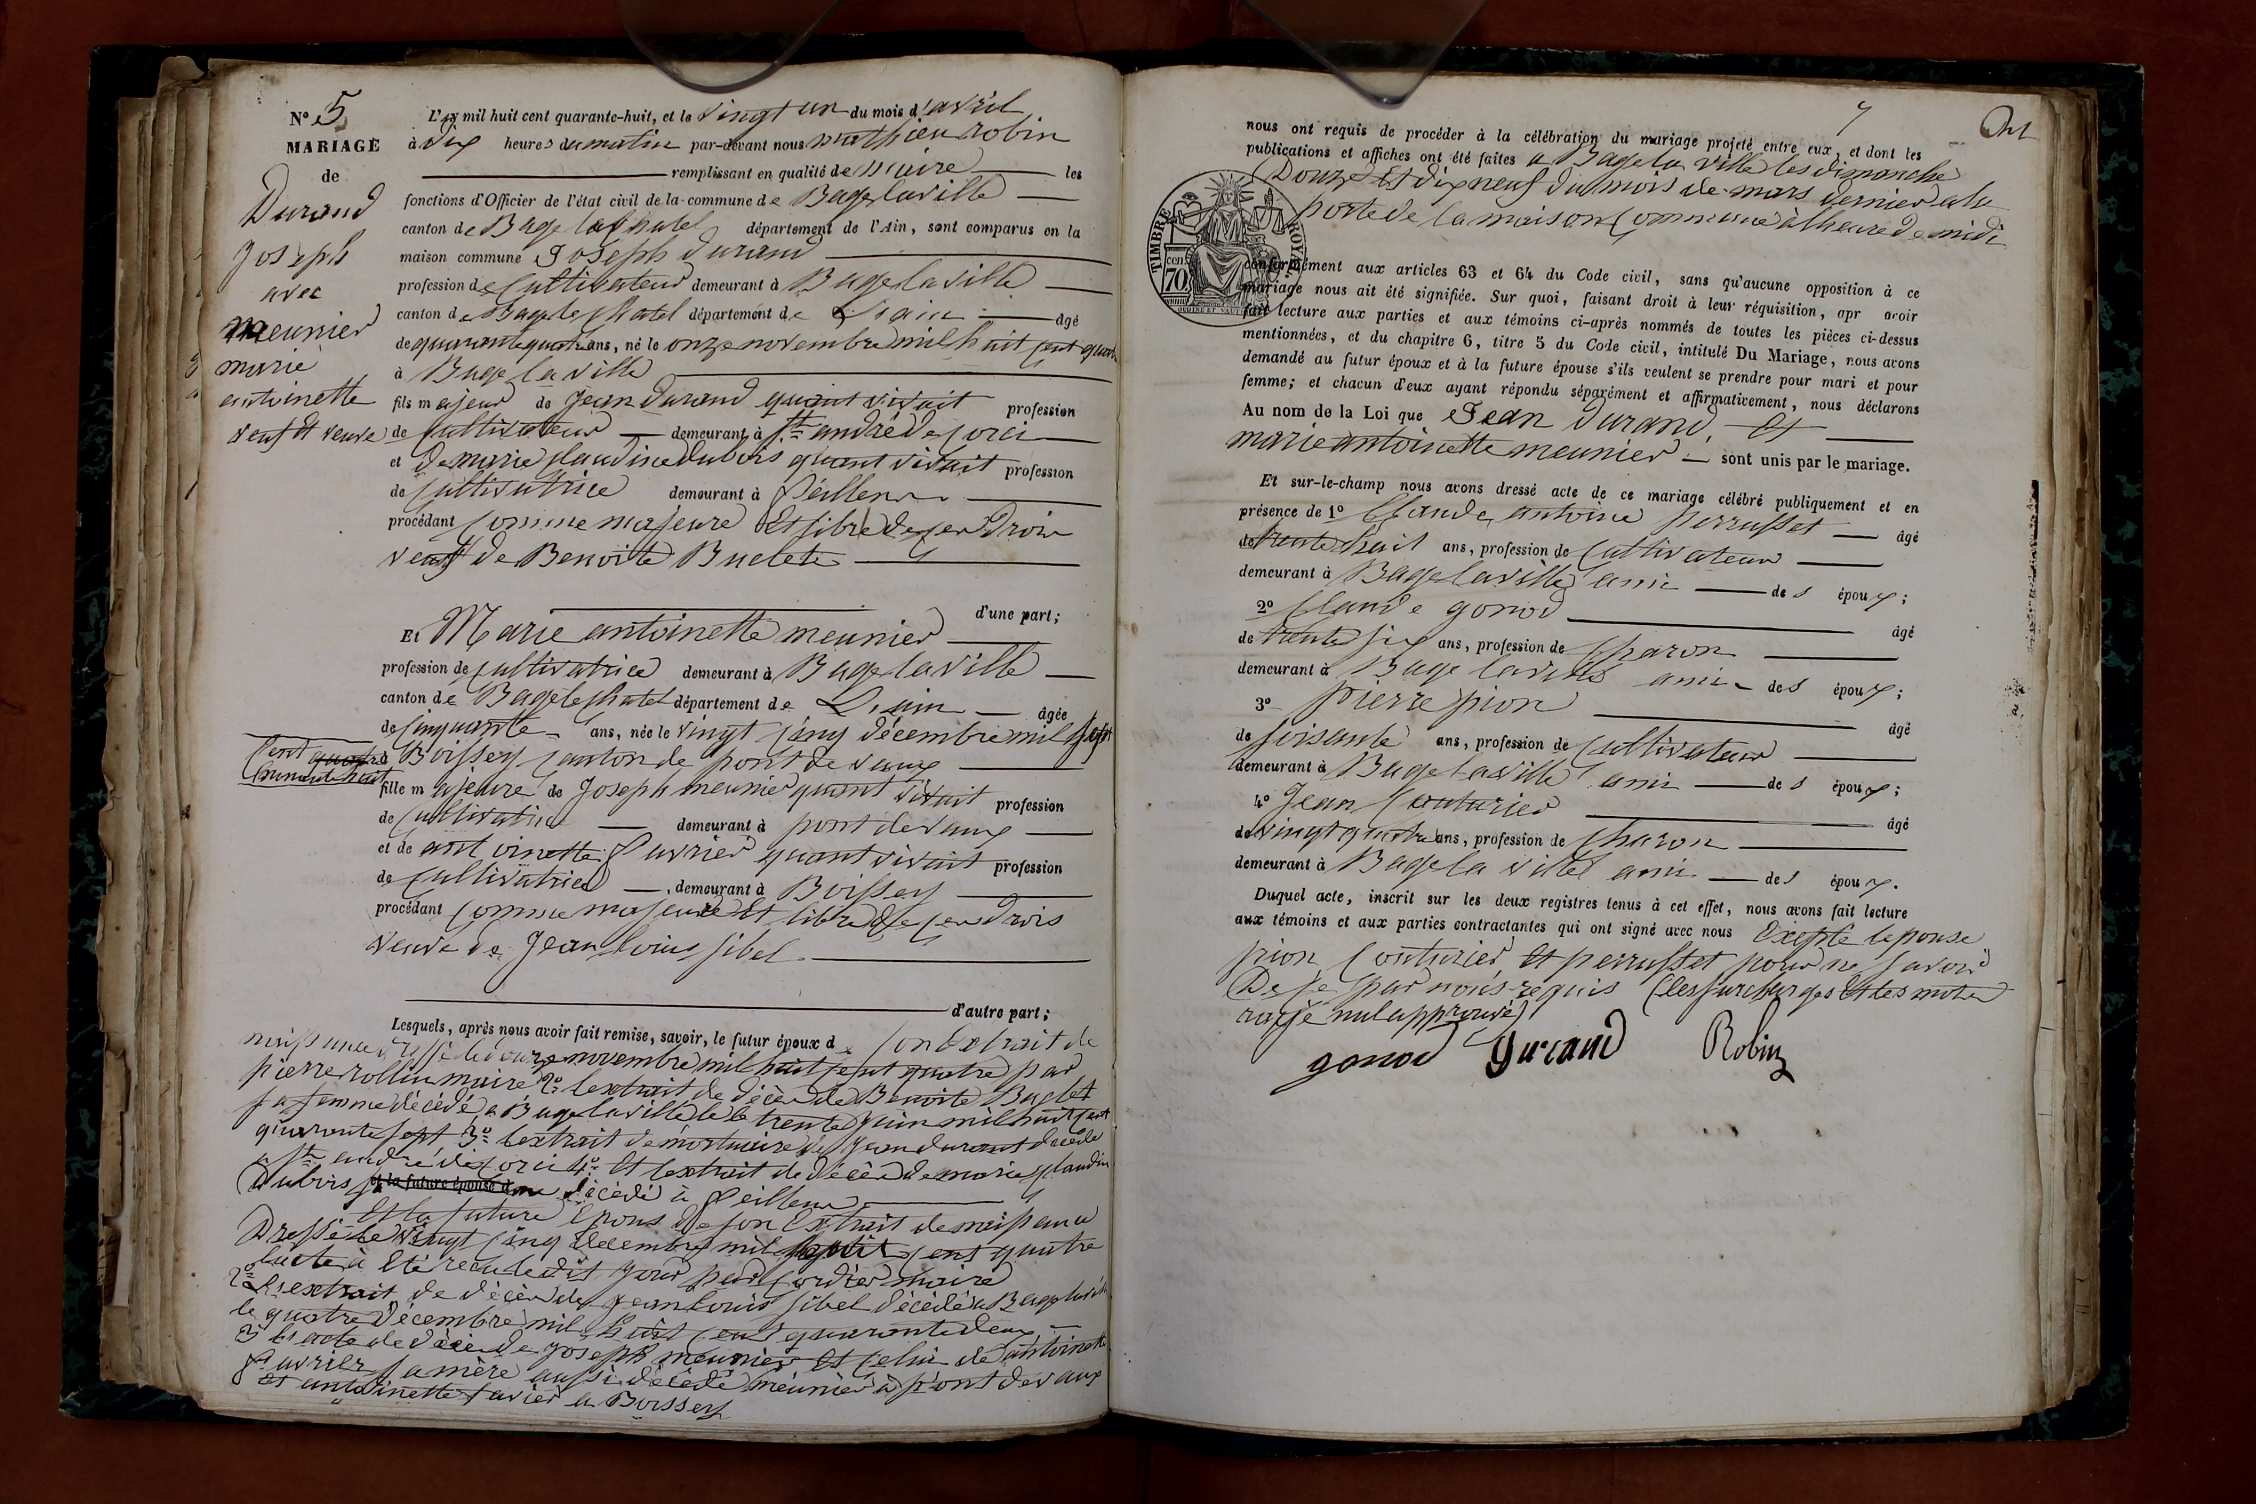 N° 5
MARIAGE
de
Durand
Joseph
avec
meunier
marie
antoinette
veuf et veuve
L'an mil huit cent quarante-huit, et le vingt un du mois d'avril
à dix heures du matin par-devant nous mathieu robin
remplissant en qualité de maire les
fonctions d'Officier de l'état civil de la commune de Bage laville
canton de Bage lechatel département de l'Ain, sont comparus en la
maison commune Joseph durand
profession de Cultivateur demeurant à Bage laville
canton de Bage le Chatel département de Lain âgé
de quarante quatre ans, né le onze novembre mil huit cent quatre
à Bage la ville
fils majeur de Jean Durand quant vivait profession
de Cultivateur demeurant à St andré de Corci
et de marie claudine dubois quant vivait profession
de Cultivatrice demeurant à
procédant Comme majeure Et libre de ses Droits
veuf de Benoite Buclet
d'une part;
Et Marie antoinette meunier
profession de Cultivatrice demeurant à Bage laville
canton de Bage le Chatel département de Lain âgée
de Cinquante ans, née le vingt Cinq décembre mil sept
Cent quatre
à Boissey Canton de pont de vaux
fille majeure de Joseph meunier quant vivait profession
de Cultivatrice demeurant à pont de vaux
et de antoinette favrier quant vivait profession
de Cultivatrice, demeurant à Boissey
procédant Comme majeure Et libre de ses Drois
veuve de Jean louis sibel
d'autre part;
Lesquels, après nous avoir fait remise, savoir, le futur époux de son Extrait de
naissance dressé le douze novembre mil huit cent quatre par
pierre rollin maire 2° lextrait de décès de Benoite Buclet
sa femme décédé a Bage laville le trente juin mil huit cent
quarante sept 3° lextrait de mortuaire de Jean durand décédé
a St andré de Corci 4° Et lextrait de décès de marie Claudine
Dubois et la future épouse d décédé à
Et la future Epouse de son Extrait de naissance
Dressé le vingt Cinq decembre mil sept cent quatre
lacte a été recu ledit jour par Cordier maire
2° lextrait de décès de Jean louis sibel décédé a Bage laville
le quatre décembre mil huit cent quarante deux
3° les acte de décès de Joseph meunier Et celui de antoinette
favrier sa mère aussi décédé meunier à pont de vaux
Et antoinette favrier a Boissey
7
nous ont requis de procéder à la célébration du mariage projeté entre eux, et dont les
publications et affiches ont été faites a Bage la ville les dimanche
Douze Et dix neuf du mois de mars dernier a la
porte de la maison Commune à lheure de midi
TIMBRE ROYAL
cen. 70
conformément aux articles 63 et 64 du Code civil, sans qu'aucune opposition à ce
mariage nous ait été signifiée. Sur quoi, faisant droit à leur réquisition, apr avoir
fait lecture aux parties et aux témoins ci-après nommés de toutes les pièces ci-dessus
mentionnées, et du chapitre 6, titre 5 du Code civil, intitulé Du Mariage, nous avons
demandé au futur époux et à la future épouse s'ils veulent se prendre pour mari et pour
femme; et chacun d'eux ayant répondu séparément et affirmativement, nous déclarons
Au nom de la Loi que Jean durand Et
marie antoinette meunier sont unis par le mariage.
Et sur-le-champ nous avons dressé acte de ce mariage célébré publiquement et en
présence de 1° Claude antoine perrusset âgé
de trente huit ans, profession de Cultivateur
demeurant à Bage laville ami des époux;
2° Claude gonod âgé
de trente six ans, profession de Charon
demeurant à Bage laville ami des époux;
3° pierre pion âgé
de soisante ans, profession de Cultivateur
demeurant à Bage laville ami des époux;
4° Jean Couturier âgé
de vingt quatre ans, profession de Charon
demeurant à Bage la ville ami des époux.
Duquel acte, inscrit sur les deux registres tenus à cet effet, nous avons fait lecture
aux témoins et aux parties contractantes qui ont signé avec nous Excepté lepouse
pion Couturier Et perrusset pour ne savoir
De ce par nous requis (les surcharges Et les mots
rayé nul approuvé)
gonod Durand Robin